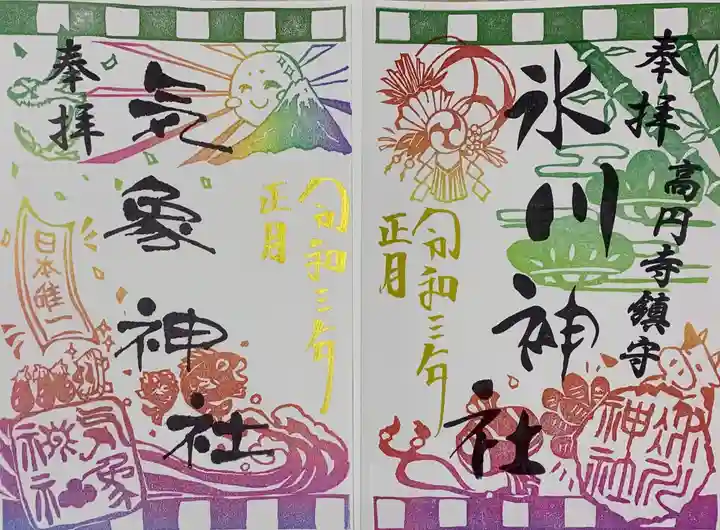 奉拝
高円寺鎮守
氷川神社
令和三年
正月
氷川
神社
奉拝
気象神社
令和三年
正月
日本唯一
気象
神社